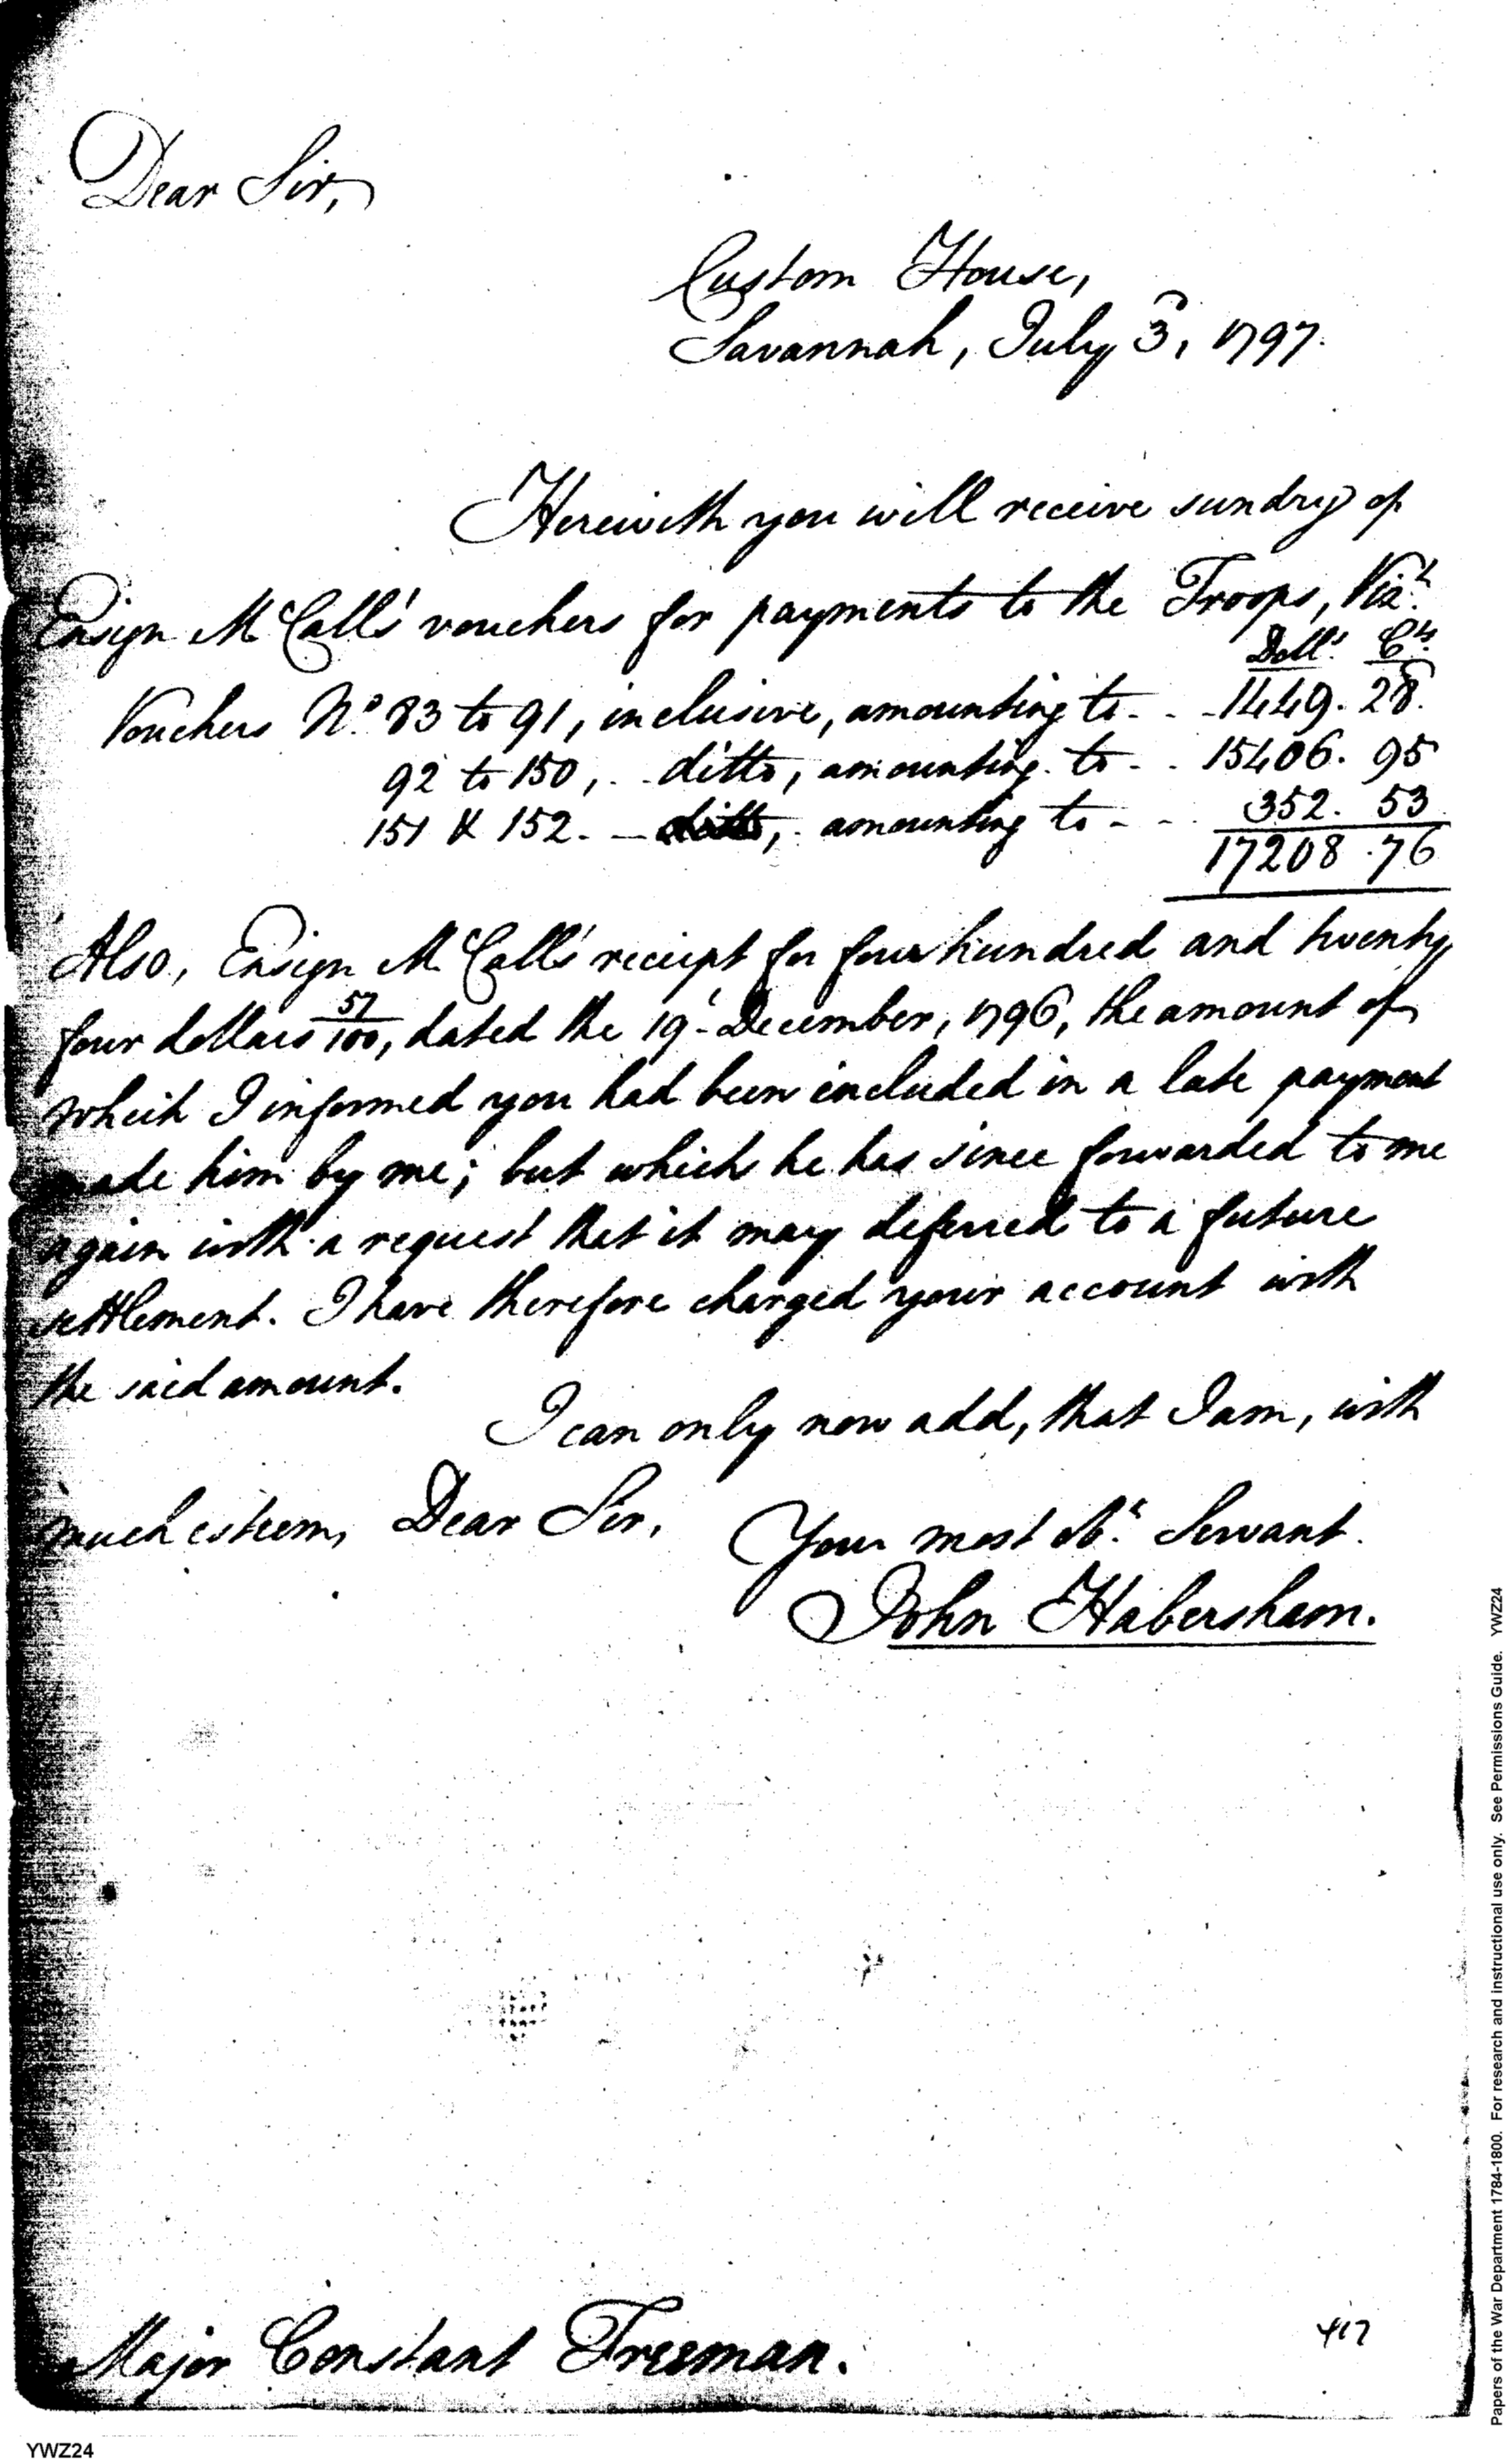 Dear Sir,
Custom House,
Savannah, July 3, 1797.
Herewith you will receive sundry of
Ensign McCall's vouchers for payments to the Troops, Vizt.
Dolls. Cts.
Vouchers No. 83 to 91, inclusive, amounting to - - - 1449. 28.
92 to 150, - - ditto, amounting to - - 15406. 95
151 & 152. - ditto, amounting to - - - 352. 53
17208.76
Also, Ensign McCall's receipt for four hundred and twenty
four dollars 57/100, dated the 19th December, 1796, the amount of
which I informed you had been included in a late payment
made him by me; but which he has since forwarded to me
again with a request that it may deferred to a future
settlement. I have therefore charged your account with
the said amount.
I can only now add, that I am, with
much esteem, Dear Sir,
Your most obt. Servant.
John Habersham.
Major Constant Freeman.
417
YWZ24
Papers of the War Department 1784-1800. For research and instructional use only. See Permissions Guide. YWZ24